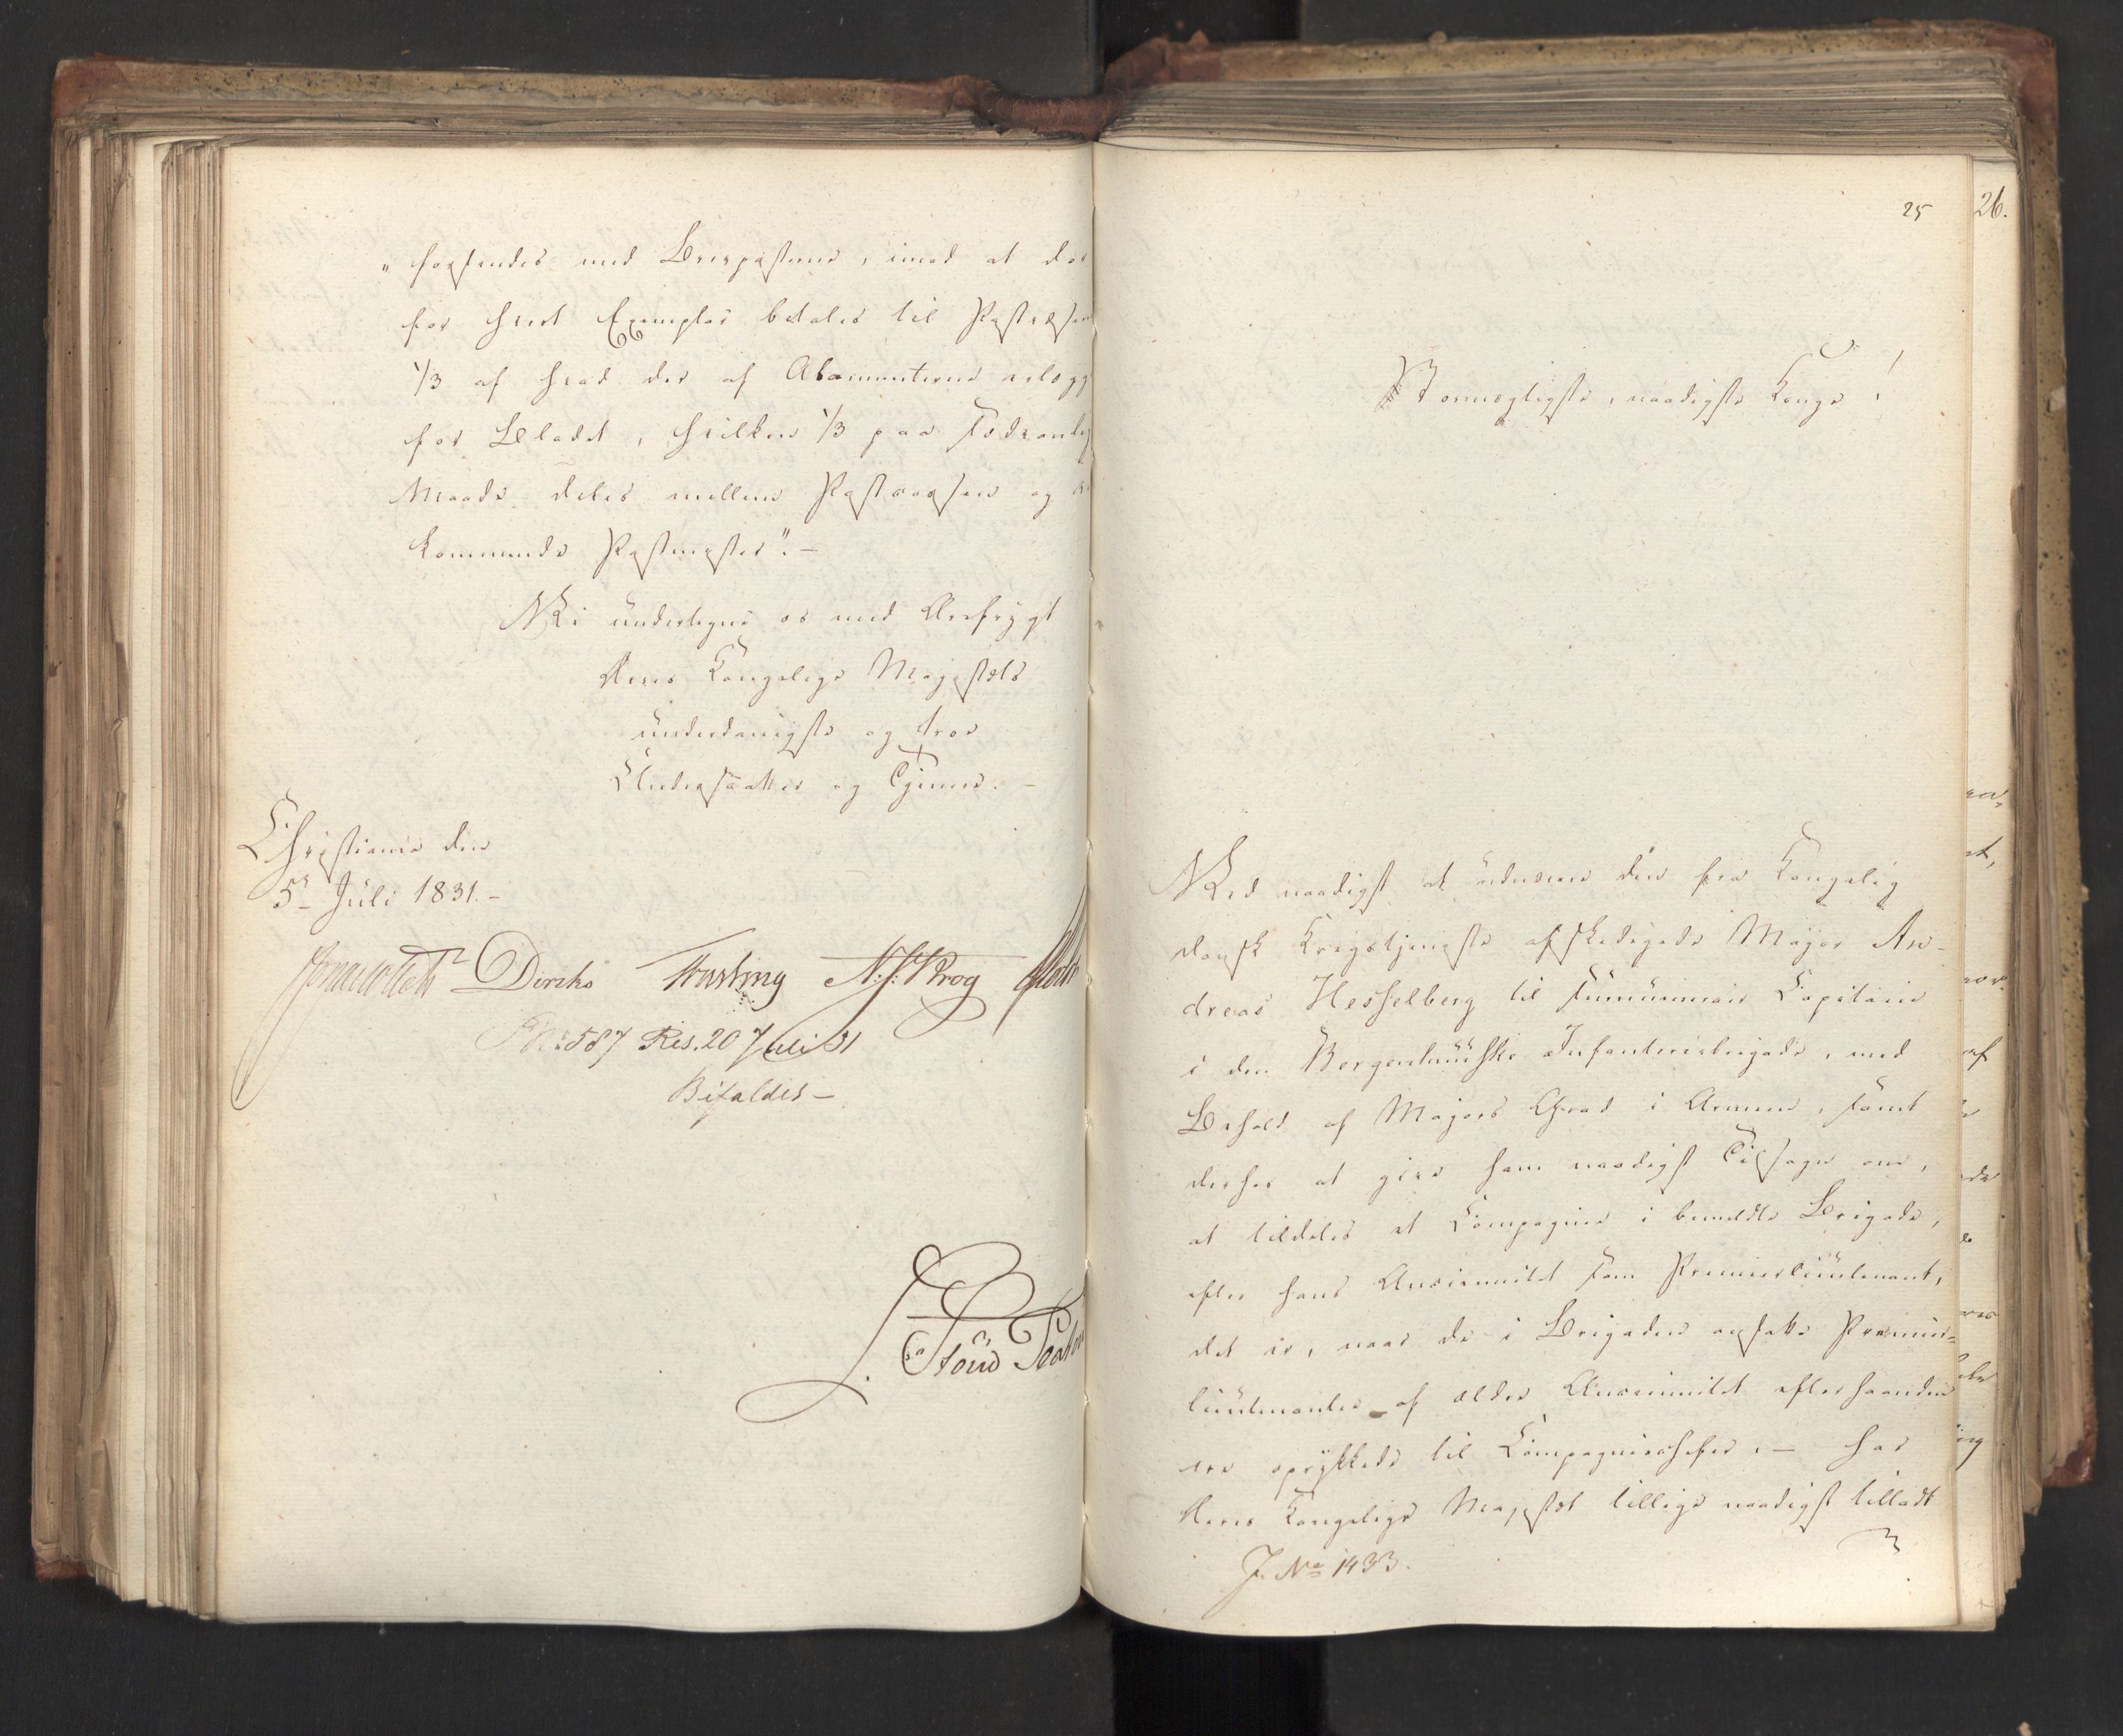 " forsendes med Brevposterne, imod at der
for hvert Exemplar betales til Postvæsen
1/3 af hvad der af Abonnenterne erlægg
for Bladet, hvilken 1/3 paa sædvanlig
Maade deles mellem Postcassen og
kommende Postmester". –
Vi undertegne os med Ærefrygt
Deres Kongelige Majestæts
underdanigste og troe
Undersaatter og Tjenere. –
Christiania den
5te Juli 1831. –
Diriks Fasting N. J. Krog
No 587 Res. 20 Juli 31
Bifaldes –
25
26.
Stormægtigste, naadigste Konge!
Ved naadigst at udnævne den fra Kongelig
dansk Krigstjeneste afskedigede Major An-
dreas Hesselberg til surnumerair Capitain
i den Bergenhuusske Infanteriebrigade, med
Behold af Majors Grad i Armeen, samt
derhos at give ham naadigst Tilsagn om,
at tildeles et Compagnie i bemeldte Brigade,
efter hans Anciennitet som Premierlieutenant,
det er, naar de i Brigaden ansatte Premier-
lieutenanter af ældre Anciennitet efterhaanden
ere oprykkede til Compagniechefer. – har
Deres Kongelige Majestæt tillige naadigst tilladt
J. No 1433.